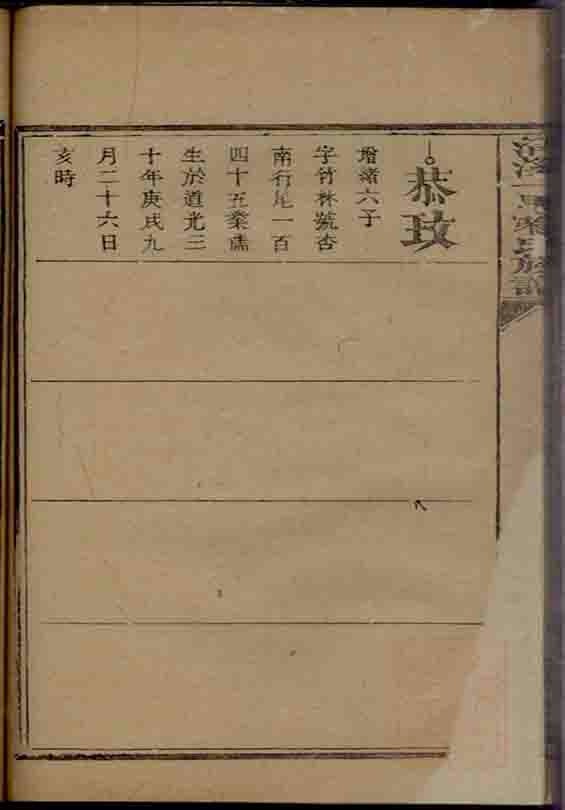 氏族譜
恭玫
增緒六子
字竹林號杏
南行尾一百
四十五業儒
生於道光三
十年庚戌九
月二十六日
亥時